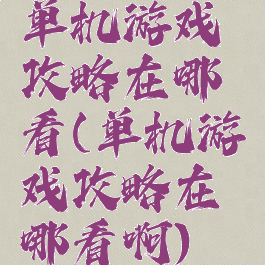 单机游戏
攻略在哪
看(单机游
戏攻略在
哪看啊)